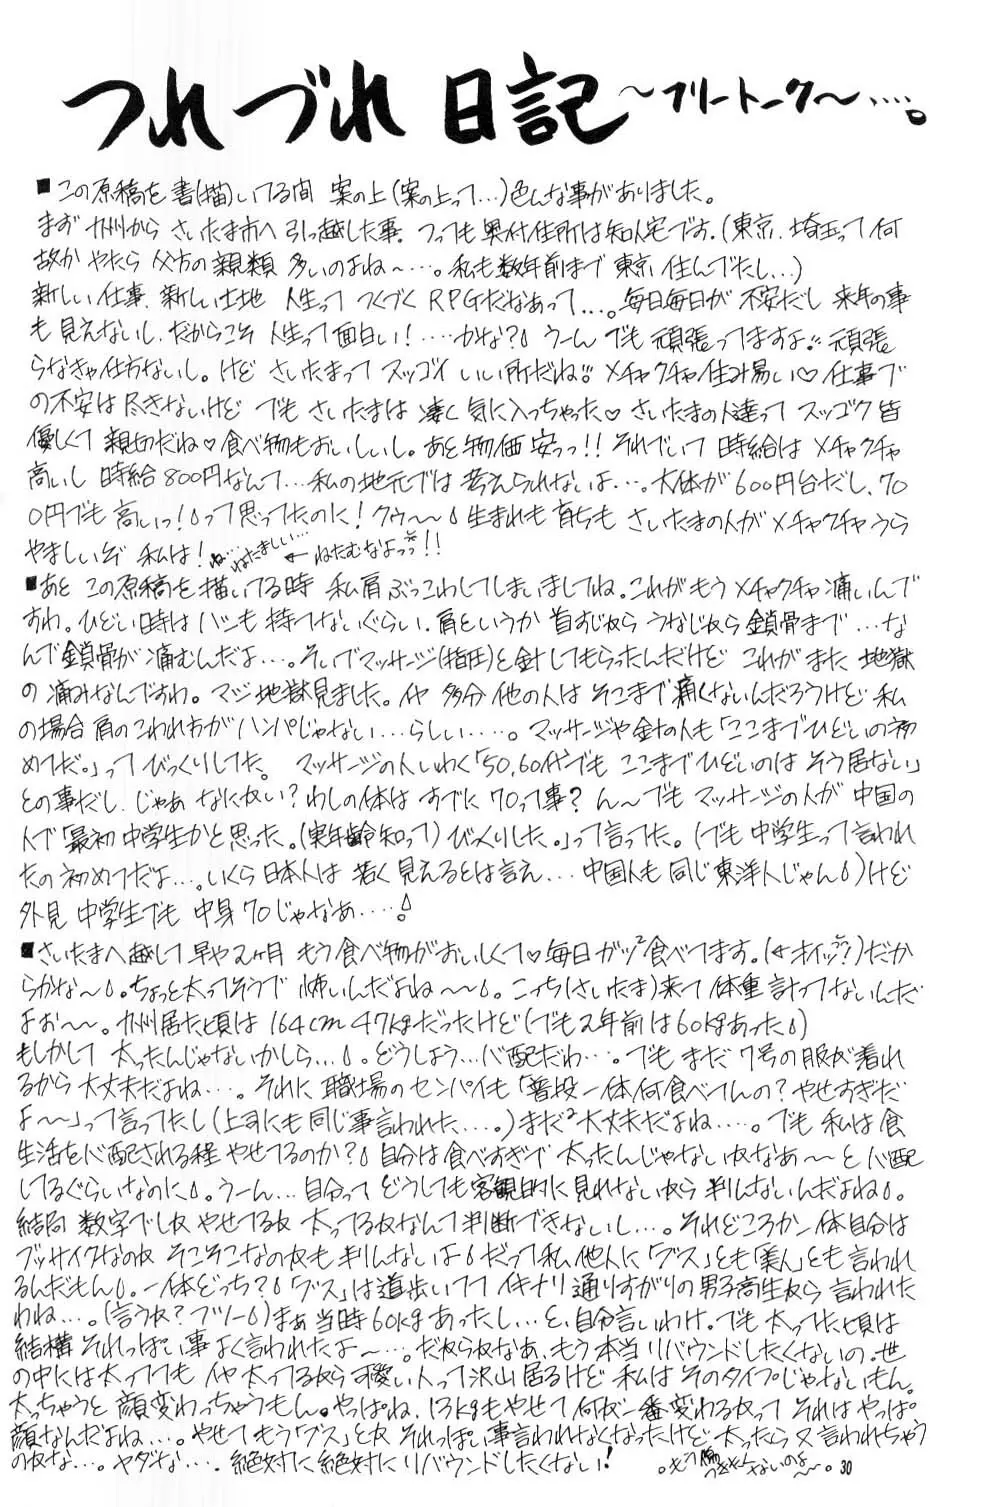 つれづれ日記 ～フリートーク～‥‥。
■この原稿を書(描)いてる間 案の上(案の上って…)色んな事がありました。
まず 九州から さいたま市へ 引っ越した事。つっても奥付住所は知人宅です。(東京、埼玉って何
故か やたら 父方の親類 多いのよね～…。私も数年前まで 東京 住んでたし…)
新しい仕事、新しい土地 人生って つくづく RPGだなあって…。毎日毎日が 不安だし 来年の事
も 見えないし、だからこそ 人生って面白い！‥‥かな？ うーん でも 頑張ってますよ!! 頑張
らなきゃ仕方ないし。けど さいたまって スッゴイ いい所だね!! メチャクチャ住み易い♡ 仕事で
の不安は 尽きないけど でも さいたまは 凄く 気に入っちゃった♡ さいたまの人達って スッゴク 皆
優しくて 親切だね♡ 食べ物もおいしいし。あと 物価 安っっ!! それでいて 時給は メチャクチャ
高いし 時給 800円なんて… 私の地元では 考えられないよ…。大体が 600円台だし、70
0円でも 高いっ！って思ってたのに！クゥ～～ 生まれも 育ちも さいたまの人が メチャクチャ うら
やましいぞ 私は！ ね…ねたましい… ← ねたむなよっっ!!
■あと この原稿を 描いてる時 私肩 ぶっこわしてしまいましてね。これがもう メチャクチャ 痛いんで
すわ。ひどい時は ハシも 持てないぐらい、肩というか 首すじから うなじから 鎖骨まで …な
んで鎖骨が 痛むんだよ…。そいでマッサージ(指圧)と 針してもらったんだけど これがまた 地獄
の 痛みなんですわ。マジ 地獄見ました。イヤ 多分 他の人は そこまで 痛くないんだろうけど 私
の場合 肩のこわれ方が ハンパじゃない…らしい…。マッサージや 針の人も「ここまでひどいの初
めてだ。」って びっくりしてた。マッサージの人いわく「50、60代でも ここまでひどいのは そう居ない」
との事だし、じゃあ なにかい？わしの体は すでに 70って事？ ん～でも マッサージの人が 中国の
人で「最初 中学生かと思った。(実年齢知って)びっくりした。」って言ってた。(でも 中学生って言われ
たの初めてだよ…。いくら 日本人は 若く 見えるとは言え… 中国人も 同じ 東洋人じゃん)けど
外見 中学生でも 中身 70じゃなあ‥‥
■さいたまへ越して 早や2ヶ月 もう 食べ物がおいしくて♡毎日ガッ²食べてます。(←オイッ??)だか
らかな～。ちょっと太ってそうで 怖いんだよね～～。こっち(さいたま)来て 体重 計ってないんだ
よぉ～～。九州居た頃は 164cm 47kgだったけど(でも 2年前は60kgあった)
もしかして 太ったんじゃないかしら…。どうしよう…心配だわ…。でも まだ 7号の服が 着れ
るから 大丈夫だよね…。それに 職場のセンパイも「普段 一体何食べてんの？やせすぎだ
よ～～」って言ってたし(上司にも 同じ事言われた…。)まだ²大丈夫だよね…。でも 私は 食
生活を心配される程 やせてるのか？ 自分は食べすぎで 太ったんじゃないかなあ～～と 心配
してるぐらいなのに。うーん…自分って どうしても 客観的に 見れないから 判んないんだよね。
結局 数字でしか やせてるか 太ってるかなんて判断できないし…。それどころか 一体自分は
ブッサイクなのか そこそこなのかも 判んないよ だって私 他人に「ブス」とも「美人」とも言われ
るんだもん。一体どっち？「ブス」は 道歩いてて イキナリ 通りすがりの男子高生から 言われた
わね…。(言うか？フツー)まぁ 当時 60kgあったし…と、自分言いわけ。でも 太ってた頃は
結構 それっぽい事 よく言われたよ～…。だからかなあ、もう本当 リバウンドしたくないの。世
の中には太ってても イヤ 太ってるから 可愛い人って沢山居るけど 私は そのタイプじゃないもん。
太っちゃうと 顔変わっちゃうもん。やっぱね、13kgもやせて 何が一番変わるかって それは やっぱ
顔なんだよね…。やせて もう「ブス」とか それっぽい事言われなくなったけど 太ったら 又 言われちゃう
のかな…。ヤダな…。絶対に 絶対に リバウンドしたくない！
30